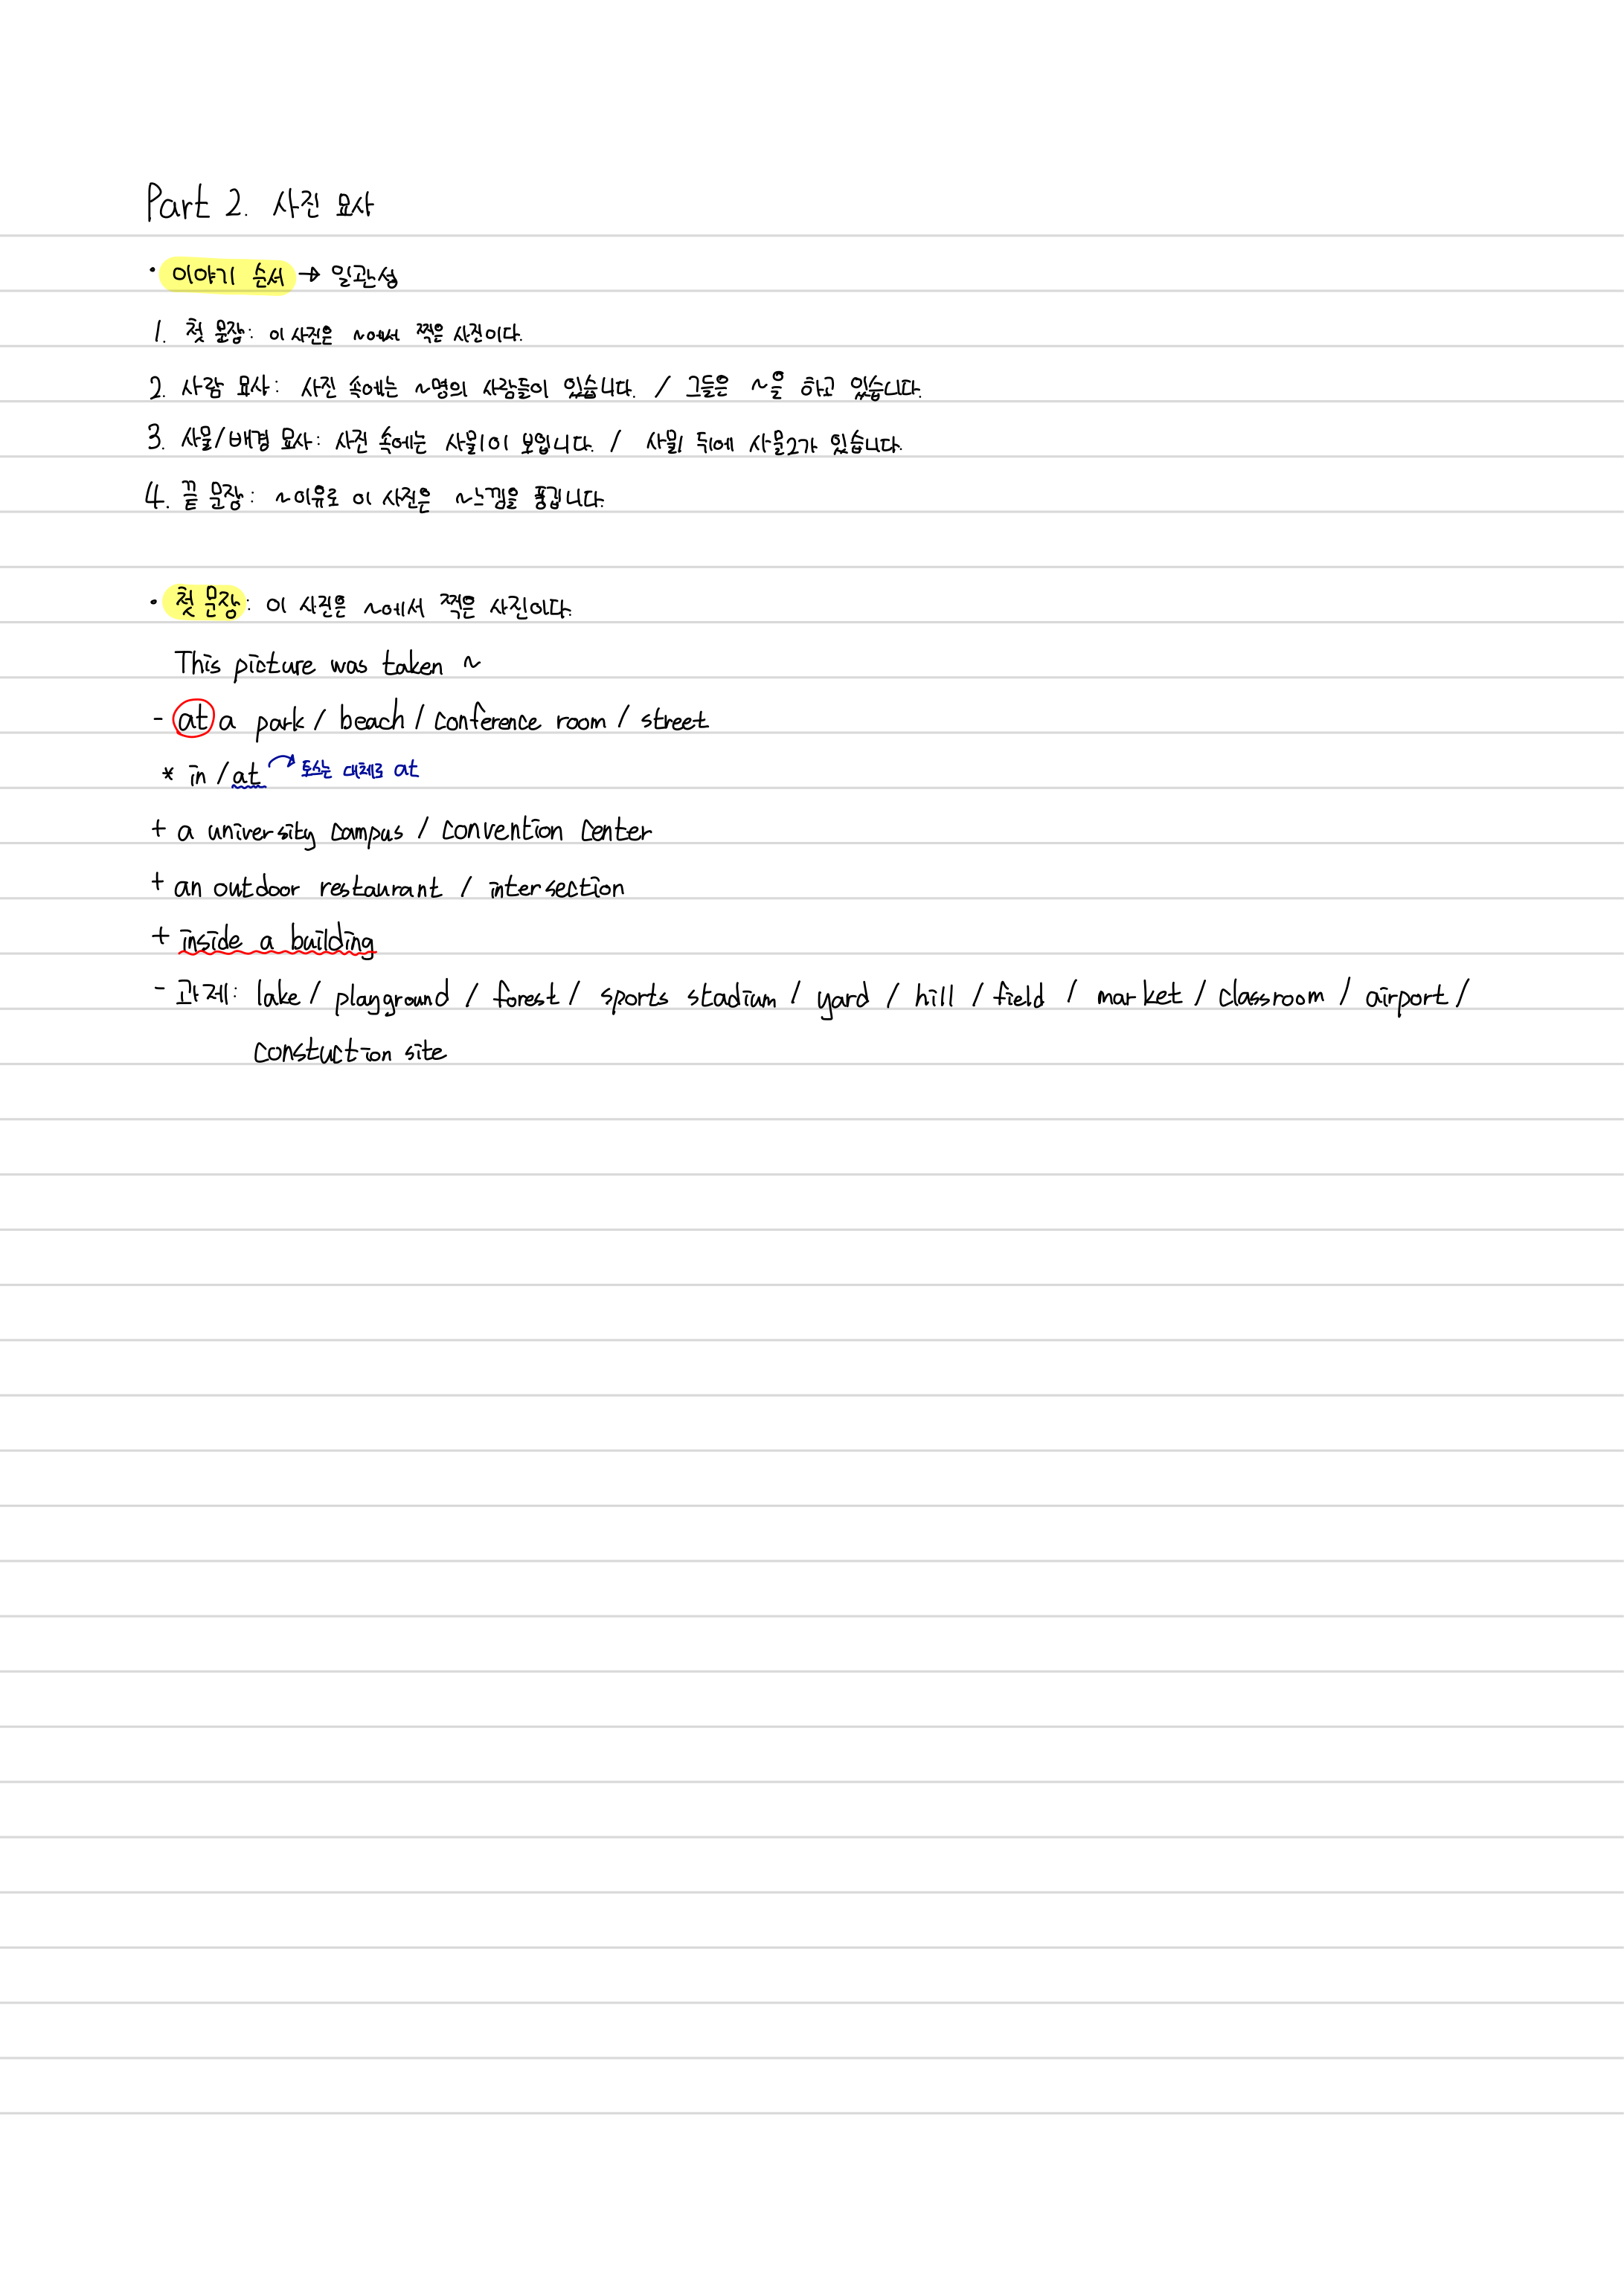 Part 2. 사진 묘사
· 이야기 순서 → 일관성
1. 첫 문장: 이 사진은 ~에서 찍은 사진이다.
2. 사람 묘사: 사진 속에는 ~명의 사람들이 있습니다. / 그들은 ~을 하고 있습니다.
3. 사물/배경 묘사: 사진 속에는 사물1이 보입니다. / 사물1 뒤에 사물2가 있습니다.
4. 끝 문장: ~이유로 이 사진은 ~느낌을 풍깁니다.
· 첫 문장: 이 사진은 ~에서 찍은 사진이다.
This picture was taken ~
- at a park / beach / conference room / street
* in / at 토스는 대체로 at
+ a university campus / convention center
+ an outdoor restaurant / intersection
+ inside a building
- 과제: lake / playground / forest / sports stadium / yard / hill / field / market / classroom / airport /
constuction site